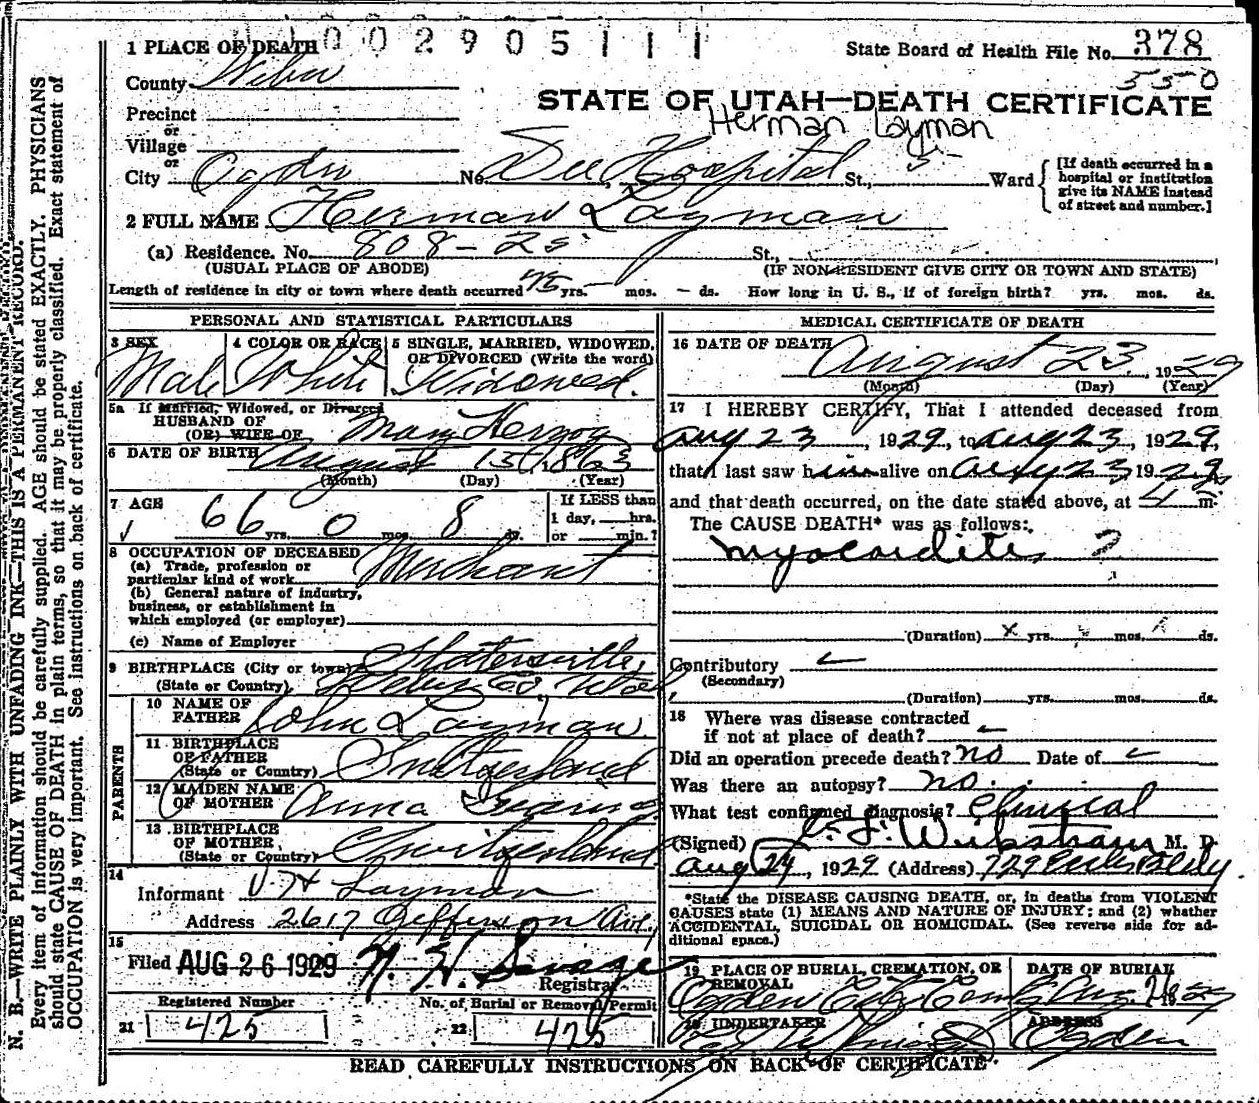 002905111
1 PLACE OF DEATH
State Board of Health File No. 378
550
County Weber
STATE OF UTAH—DEATH CERTIFICATE
Herman Layman
Precinct
or
Village
or
City Ogden No. Dee Hospital St., 5 Ward
[If death occurred in a
hospital or institution
give its NAME instead
of street and number.]
2 FULL NAME Herman Layman
(a) Residence. No. 808-25 St.,
(USUAL PLACE OF ABODE) (IF NON-RESIDENT GIVE CITY OR TOWN AND STATE)
Length of residence in city or town where death occurred yrs. — mos. — ds. How long in U. S., if of foreign birth? yrs. mos. ds.
PERSONAL AND STATISTICAL PARTICULARS
3 SEX 4 COLOR OR RACE 5 SINGLE, MARRIED, WIDOWED,
OR DIVORCED (Write the word)
Male White Widowed.
5a If Married, Widowed, or Divorced
HUSBAND OF
(OR) WIFE OF Mary Herzog
6 DATE OF BIRTH August 15th, 1863
(Month) (Day) (Year)
7 AGE
66 yrs. 0 mos. 8 ds.
If LESS than
1 day, hrs.
or min.?
8 OCCUPATION OF DECEASED
(a) Trade, profession or
particular kind of work Merchant
(b) General nature of industry,
business, or establishment in
which employed (or employer)
(c) Name of Employer
9 BIRTHPLACE (City or town) Slatersville,
(State or Country) Weber Co, Utah
PARENTS
10 NAME OF
FATHER John Layman
11 BIRTHPLACE
OF FATHER
(State or Country) Switzerland
12 MAIDEN NAME
OF MOTHER Anna
13 BIRTHPLACE
OF MOTHER
(State or Country) Switzerland
14
Informant V. H Layman
Address 2617 Jefferson Ave.
15
Filed AUG 26 1929
Registrar
Registered Number No. of Burial or Removal Permit
21 425 22 425
MEDICAL CERTIFICATE OF DEATH
16 DATE OF DEATH
August 23, 1929
(Month) (Day) (Year)
17 I HEREBY CERTIFY, That I attended deceased from
Aug 23, 1929, to Aug 23, 1929,
that I last saw him alive on Aug 23 1929
and that death occurred, on the date stated above, at 4 m.
The CAUSE DEATH* was as follows:
Myocarditis ?
(Duration) yrs. mos. ds.
Contributory
(Secondary)
(Duration) yrs. mos. ds.
18 Where was disease contracted
if not at place of death?
Did an operation precede death? no Date of
Was there an autopsy? no.
What test confirmed diagnosis? Clinical
(Signed) M. D.
Aug 24, 1929 (Address) 729 Eccles Bldg
*State the DISEASE CAUSING DEATH, or, in deaths from VIOLENT
CAUSES state (1) MEANS AND NATURE OF INJURY; and (2) whether
ACCIDENTAL, SUICIDAL OR HOMICIDAL. (See reverse side for ad-
ditional space.)
19 PLACE OF BURIAL, CREMATION, OR
REMOVAL
Ogden City Cem
DATE OF BURIAL
Aug. 26 1929
20 UNDERTAKER
ADDRESS
Ogden
READ CAREFULLY INSTRUCTIONS ON BACK OF CERTIFICATE
N. B.—WRITE PLAINLY WITH UNFADING INK—THIS IS A PERMANENT RECORD.
Every item of information should be carefully supplied. AGE should be stated EXACTLY. PHYSICIANS
should state CAUSE OF DEATH in plain terms, so that it may be properly classified. Exact statement of
OCCUPATION is very important. See instructions on back of certificate.